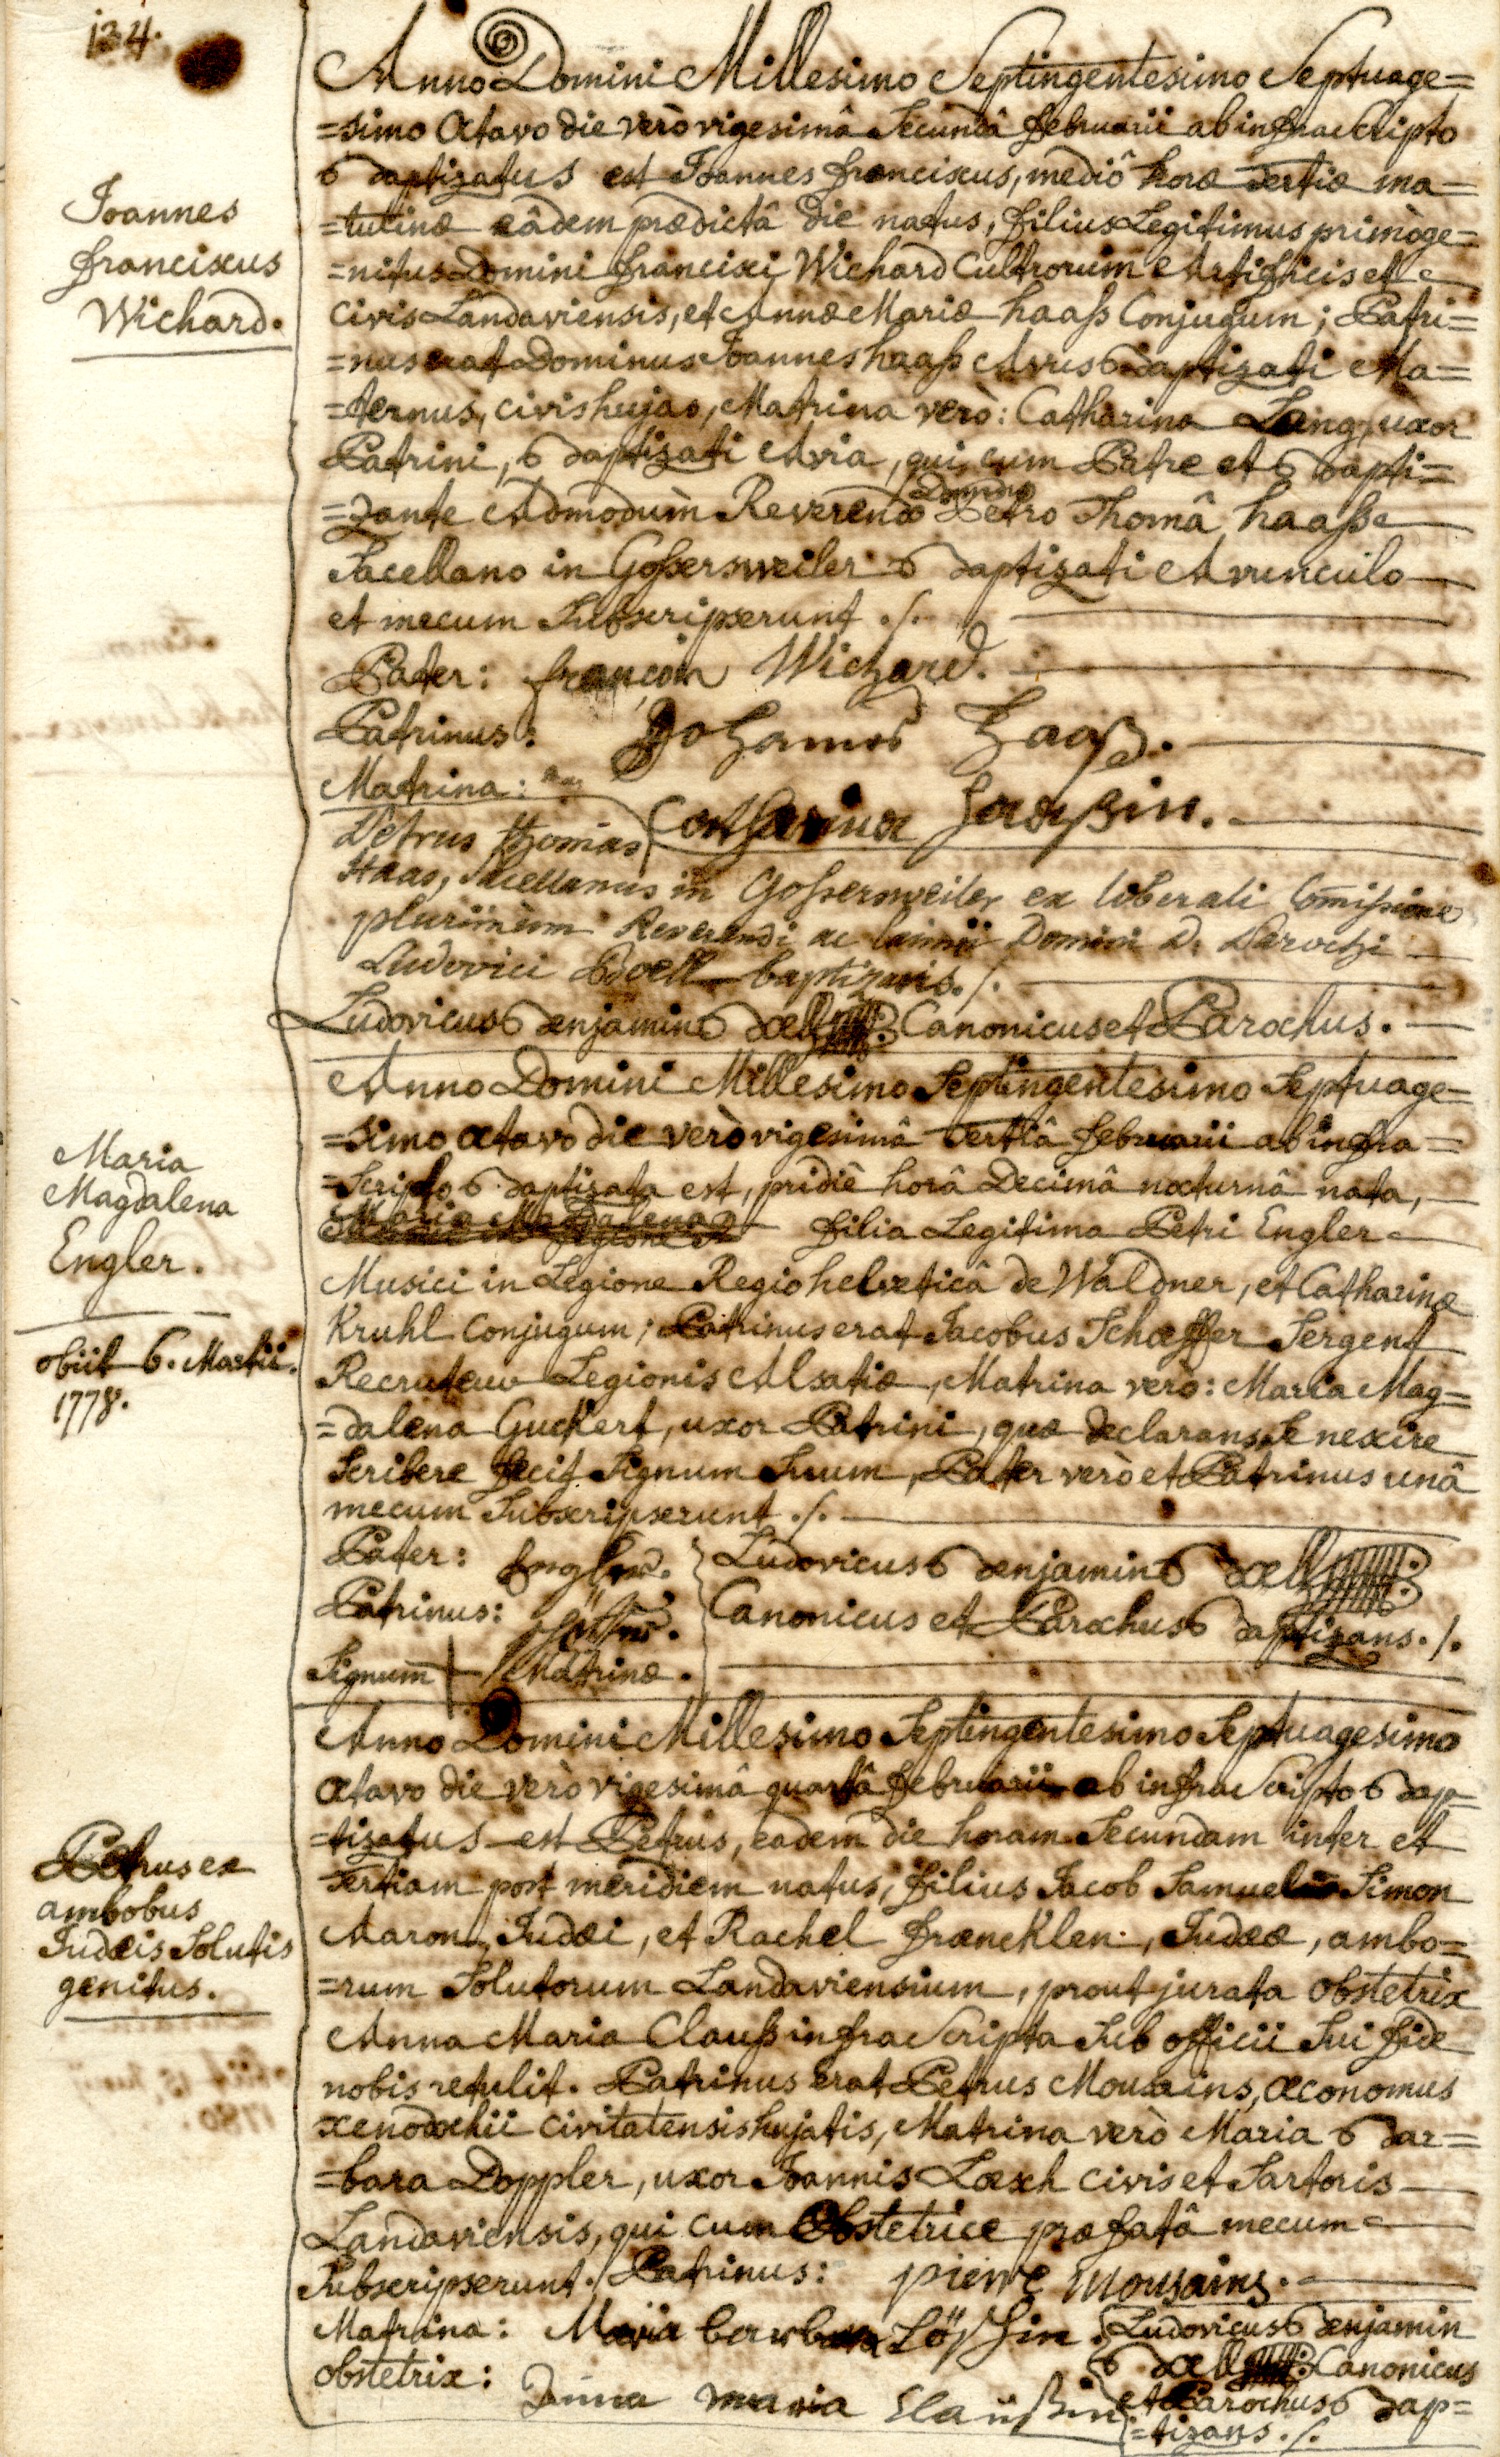 134.
Joannes
franciscus
Wichard.
Anno Domini Millesimo Septingentesimo Septuage=
=simo Octavo die verò vigesimâ Secundâ februarii ab infrascripto
Baptizatus est Joannes franciscus, mediô horæ tertiæ ma=
=tutinæ eâdem prædictâ die natus, filius Legitimus primòge=
=nitus Domini francisci Wichard Cultrorum Artificis et
civis Landaviensis, et Annæ Mariæ haaß Conjugum; Patri=
=nus erat Dominus Joannes haaß Avus Baptizati Ma=
=ternus, civis hujas, Matrina verò: Catharina Lang, uxor
Patrini, Baptizati Avia, qui cum Patre et Bapti=
=zante Admodùm Reverendo Domino Petro Thomâ haaß
Sacellano in Goßersweiler Baptizati Avunculo
et mecum Subscripserunt ./.
Pater: françois Wichard.
Patrinus: Johannes Haaß.
Matrina: Catharina Haaßin.
Petrus Thomas
Haas, Sacellanus in Goßersweiler ex liberali Comißione
plurimum Reverendi ac Domini D. Parochi
Ludovici Boell baptizavis./.
Ludovicus Benjamin Boell Canonicus et Parochus.
Maria
Magdalena
Engler.
obiit 6. Martii.
1778.
Anno Domini Millesimo Septingentesimo Septuage=
=simo octavo die verò vigesimâ tertiâ februarii ab infra=
=Scripto Baptizata est, pridiè horâ Decimâ nocturnâ nata,
Maria Magdalena filia Legitima Petri Engler
Musici in Legione Regio helveticâ de Waldner, et Catharinæ
Kruhl Conjugum; Patrinus erat Jacobus Schæffer Sergent
Recruteur Legionis Alsatiæ, Matrina verò: Maria Mag=
=dalena Guckert, uxor Patrini, quæ declarans Se nescire
Scribere fecit Signum Suum, Pater verò et Patrinus unâ
mecum Subscripserunt ./.
Pater: Engler.
Patrinus:
Signum + Matrinæ.
Ludovicus Benjamin Boell
Canonicus et Parochus Baptizans./.
Petrus ex
ambobus
Judæis Solutis
genitus.
Anno Domini Millesimo Septingentesimo Septuagesimo
octavo die verò vigesimâ quartâ februarii ab infraScripto Bap=
=tizatus est Petrus, eadem die horam Secundam inter et
tertiam post meridiem natus, filius Jacob Samuel Simon
Aaron, Judæi, et Rachel fræncklen, Judææ, ambo=
=rum Solutorum Landaviensium, prout jurata obstetrix
Anna Maria Clauß infraScripta Sub officii Sui fide
nobis retulit. Patrinus erat Petrus Mousains, œconomus
xenodochii civitatensis hujatis, Matrina verò Maria Bar=
=bara Doppler, uxor Joannis Lœsch civis et Sartoris
Landaviensis, qui cum Obstetrice præfatâ mecum
Subscripserunt./. Patrinus: pierre Mousains.
Matrina: Maria barbara Lößhin.
obstetrix: Anna maria Claußin
Ludovicus Benjamin
Boell Canonicus
et Parochus Bap=
=tizans./.